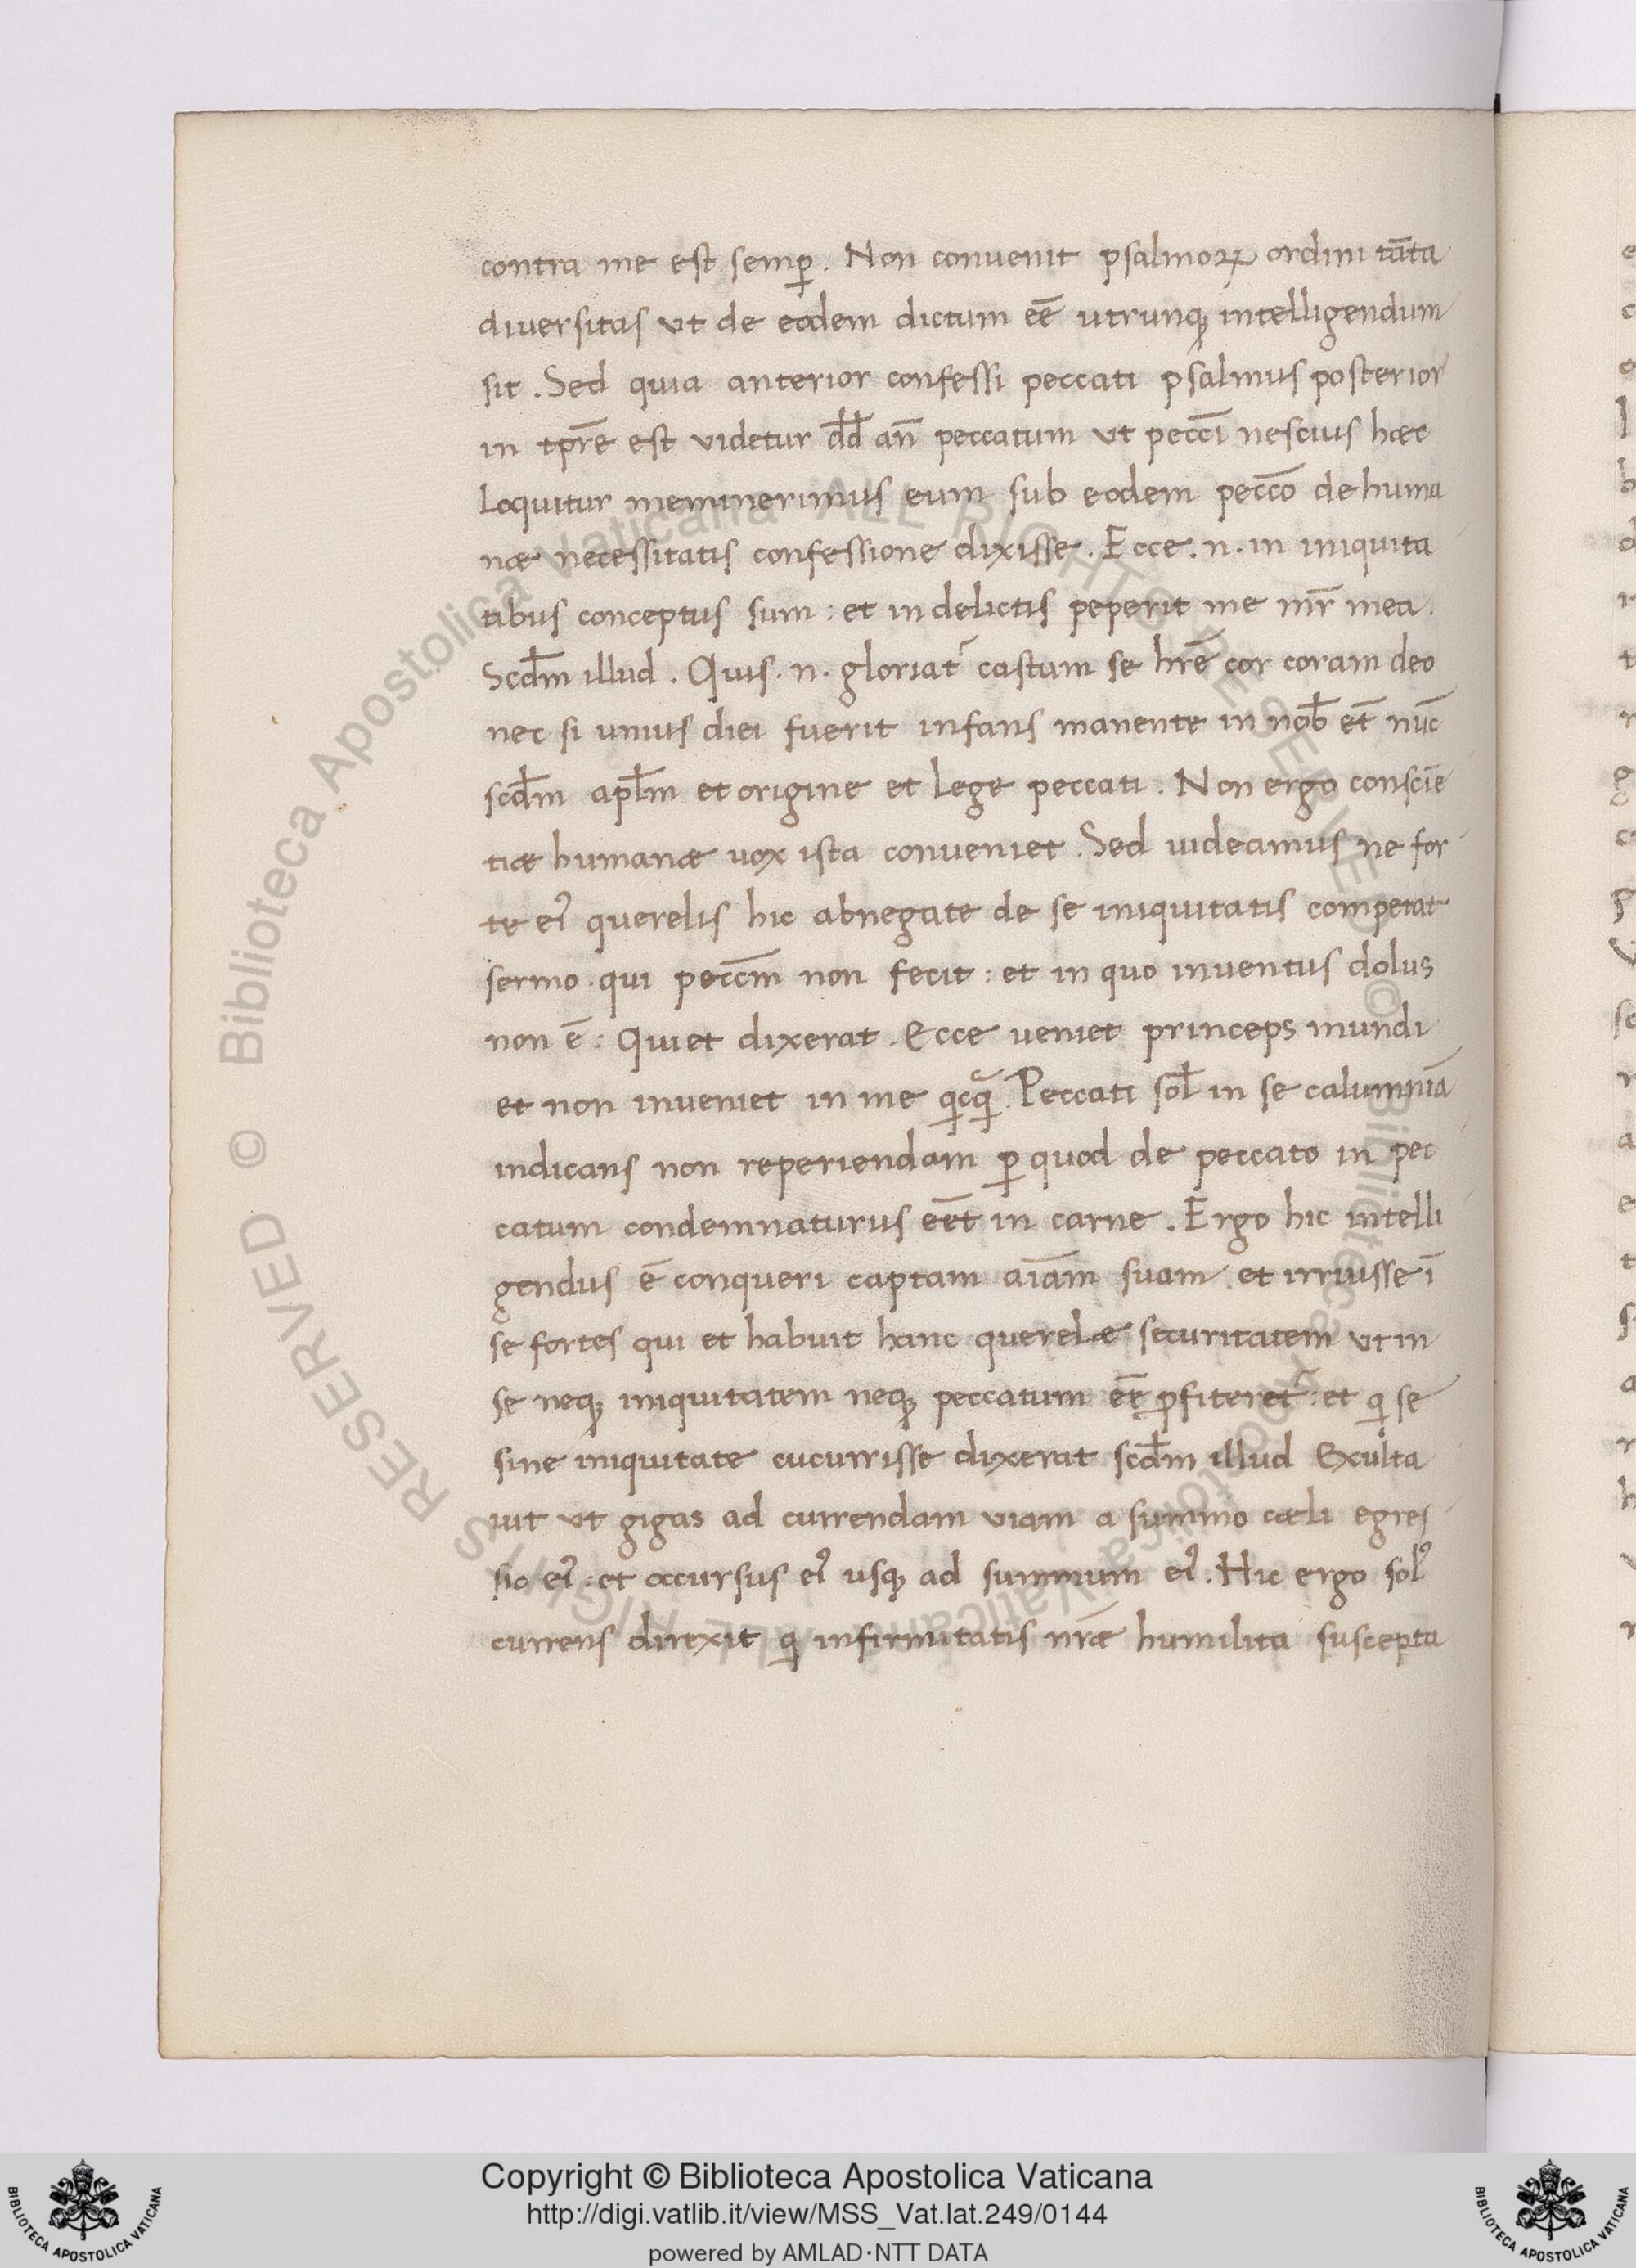 contra me est semp̲. Non convenit psalmoꝝ ordini tāta
diversitas ut de eodem dictum eē utrunqꝫ intelligendum
sit. Sed quia anterior confessi peccati psalmus posterior
in tp̄re est videtur dd̄ an̄ peccatum ut pecc̄i nescius hæc
Loquitur meminerimus eum sub eodem pecc̄o de huma
næ necessitatis confessione dixisse. Ecce .n. in iniquita
tibus conceptus sum : et in delictis peperit me mr̄ mea.
Scd̄m illud. Quis .n. gloriat᷑ castum se hr̄e cor coram deo
nec si unius diei fuerit infans manente in nob̄ et̄ nūc
scd̄m apl̄m et origine et Lege peccati. Non ergo conscīe
tiæ humanæ uox ista conveniet. Sed uideamus ne for
te eiꝰ querelis hic abnegate de se iniquitatis competat
sermo. qui pecc̄m non fecit : et in quo inventus dolus
non ē : Qui et dixerat. Ecce veniet princeps mundi
et non inveniet in me qͥcꝗ̃. Peccati sol̄ in se calumniā
indicans non reperiendam ꝑ quod de peccato in pec
catum condemnaturus eēt in carne. Ergo hic intelli
gendus ē conqueri captam aīam suam et irruisse ī
se fortes qui et habuit hanc querelæ securitatem ut in
se neqꝫ iniquitatem neqꝫ peccatum eē ꝓfiteret᷑ : et q̇ se
sine iniquitate cucurrisse dixerat scd̄m illud Exulta
uit ut gigas ad currendam viam a summo cæli egres
sio eiꝰ : et occursus eiꝰ usqꝫ ad summum eiꝰ. Hic ergo solꝰ
currens direxit q̇ infirmitatis nr̄æ humilita suscepta
Copyright © Biblioteca Apostolica Vaticana
http://digi.vatlib.it/view/MSS_Vat.lat.249/0144
powered by AMLAD·NTT DATA
BIBLIOTECA APOSTOLICA VATICANA
BIBLIOTECA APOSTOLICA VATICANA
© Biblioteca Apostolica Vaticana ALL RIGHTS RESERVED © Biblioteca Apostolica Vaticana ALL RIGHTS RESERVED